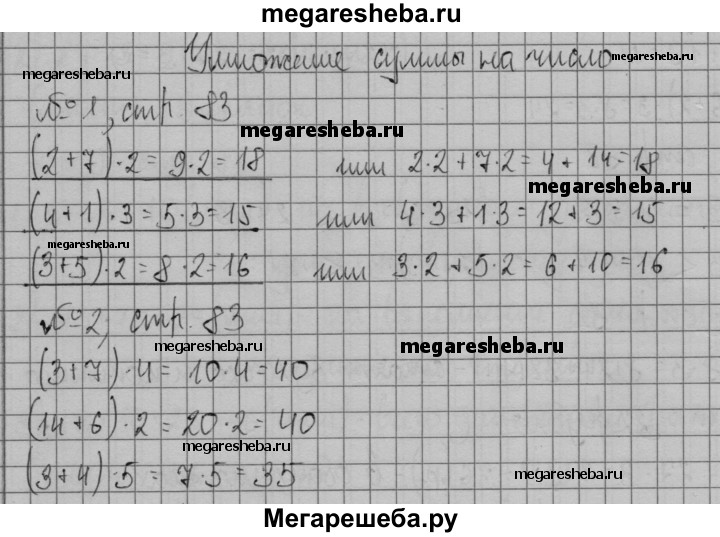 megaresheba.ru
Умножение суммы на число megaresheba.ru
megaresheba.ru
№ 1, стр. 83
megaresheba.ru
(2+7)·2= 9·2=18 или 2·2+7·2=4+14=18
megaresheba.ru
(4+1)·3=5·3=15 или 4·3+1·3=12+3=15
megaresheba.ru
(3+5)·2=8·2=16 или 3·2+5·2=6+10=16
№2, стр. 83
megaresheba.ru megaresheba.ru
(3+7)·4= 10·4=40
(14+6)·2=20·2=40
megaresheba.ru
(3+4)·5=7·5=35 megaresheba.ru
Мегарешеба.ру